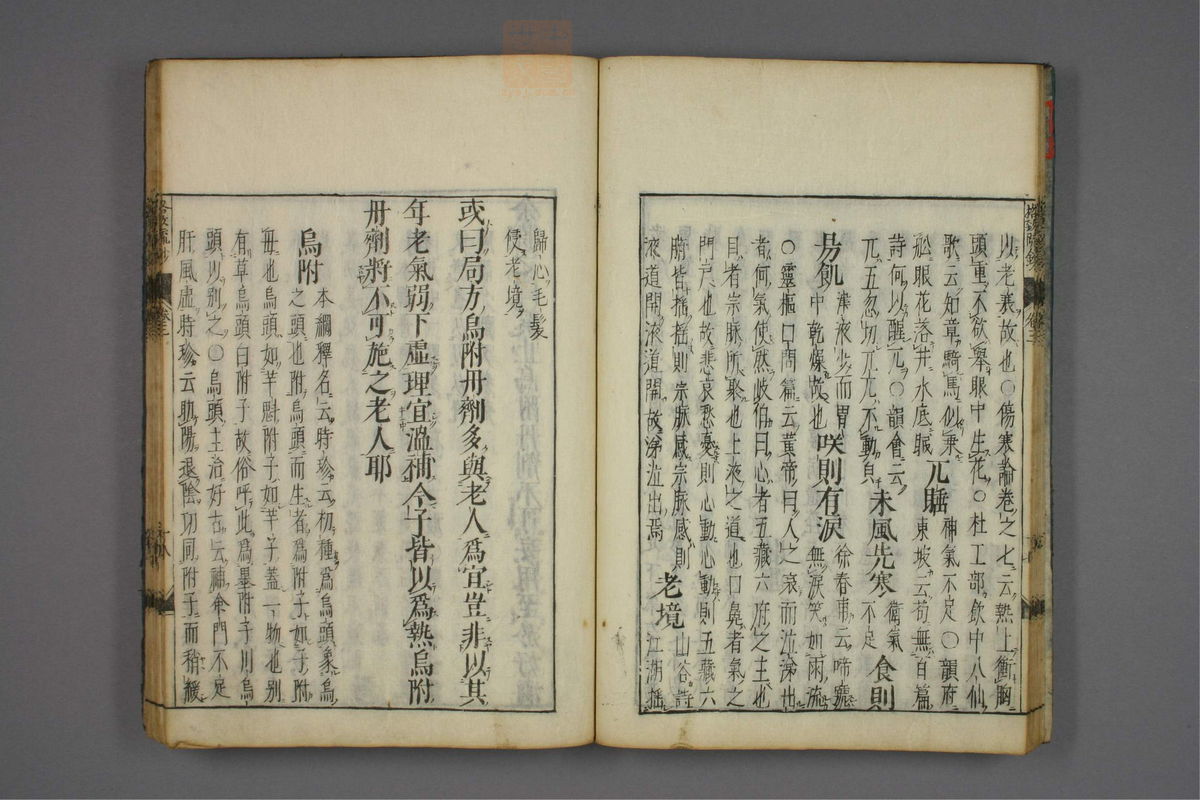 以老衰故也○傷寒論卷之七云熱上衝胸
頭重不欲舉眼中生花○杜工部飲中八仙
歌云知章騎馬似乘
船眼花落井水底眠
兀瞌
神氣不足○韻府
東坡云苟無百篇
詩何以醒兀○韻會云
兀五忽切兀兀不動貌
未風先寒
衛氣
不足
食則
易飢
津液少而胃
中乾燥故也
咲則有淚
徐春甫云啼號
無淚笑如雨流
○靈樞口問篇云黃帝曰人之哀而泣涕出
者何氣使然岐伯曰心者五藏六府之主也
目者宗脉所聚也上液之道也口鼻者氣之
門戶也故悲哀愁憂則心動心動則五藏六
府皆搖搖則宗脉感宗脉感則
液道開液道開故涕泣出焉
老境
山谷詩
江湖搖
歸心毛髮
侵老境
或曰局方烏附丹劑多與老人爲宜豈非以其
年老氣弱下虛理宜溫補今子皆以爲熱烏附
丹劑將不可施之老人耶
烏附
本綱釋名云時珍云初種爲烏頭象烏
之頭也附烏頭而生者爲附子如子附
母也烏頭如芋魁附子如芋子蓋一物也別
有草烏頭白附子故俗呼此爲黑附子川烏
頭以別之○烏頭主治好古云補命門不足
肝風虛時珍云助陽退陰功同附子而稍緩